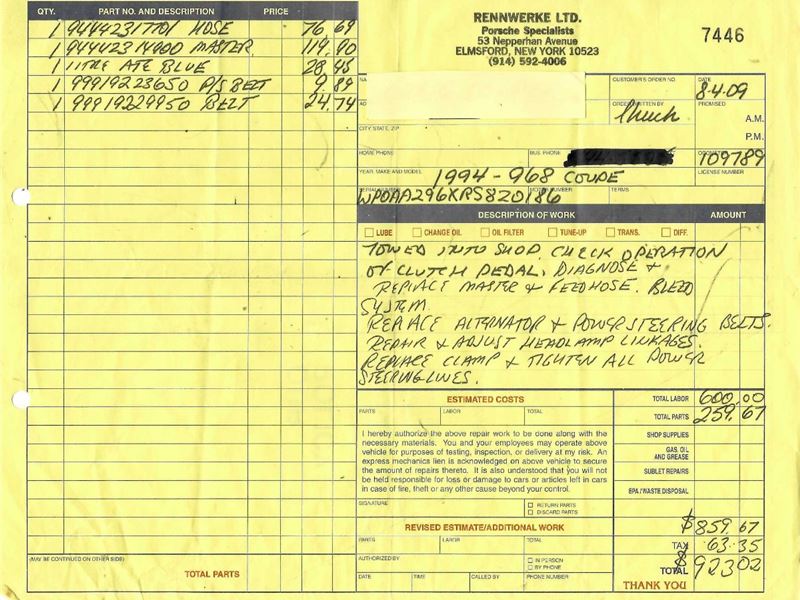 QTY. PART NO. AND DESCRIPTION PRICE
1 94442317701 HOSE 76 69
1 94442314900 MASTER 119.90
1 1 LITRE ATE BLUE 28 45
1 99919223650 P/S BELT 9.89
1 99919229950 BELT 24.74
(MAY BE CONTINUED ON OTHER SIDE)
TOTAL PARTS
RENNWERKE LTD.
Porsche Specialists
53 Nepperhan Avenue
ELMSFORD, NEW YORK 10523
(914) 592-4006
7446
NA
CUSTOMER'S ORDER NO. DATE
8-4-09
AD
ORDER WRITTEN BY PROMISED
Chuck A.M.
P.M.
CITY, STATE, ZIP
HOME PHONE BUS. PHONE ODOMETER
109789
YEAR, MAKE AND MODEL LICENSE NUMBER
1994 - 968 COUPE
SERIAL NUMBER MOTOR NUMBER TERMS
WPOAA296XRS820186
DESCRIPTION OF WORK AMOUNT
LUBE CHANGE OIL OIL FILTER TUNE-UP TRANS. DIFF.
TOWED INTO SHOP. CHECK OPERATION
OF CLUTCH PEDAL. DIAGNOSE &
REPLACE MASTER & FEED HOSE. BLEED
SYSTEM.
REPLACE ALTERNATOR & POWER STEERING BELTS.
REPAIR & ADJUST HEADLAMP LINKAGES.
REPLACE CLAMP & TIGHTEN ALL POWER
STEERING LINES.
ESTIMATED COSTS
PARTS LABOR TOTAL
I hereby authorize the above repair work to be done along with the
necessary materials. You and your employees may operate above
vehicle for purposes of testing, inspection, or delivery at my risk. An
express mechanics lien is acknowledged on above vehicle to secure
the amount of repairs thereto. It is also understood that you will not
be held responsible for loss or damage to cars or articles left in cars
in case of fire, theft or any other cause beyond your control.
SIGNATURE
RETURN PARTS
DISCARD PARTS
REVISED ESTIMATE/ADDITIONAL WORK
PARTS LABOR TOTAL
AUTHORIZED BY
IN PERSON
BY PHONE
DATE TIME CALLED BY PHONE NUMBER
TOTAL LABOR 600.00
TOTAL PARTS 259.67
SHOP SUPPLIES
GAS, OIL
AND GREASE
SUBLET REPAIRS
EPA / WASTE DISPOSAL
$859.67
TAX 63.35
TOTAL $923 02
THANK YOU